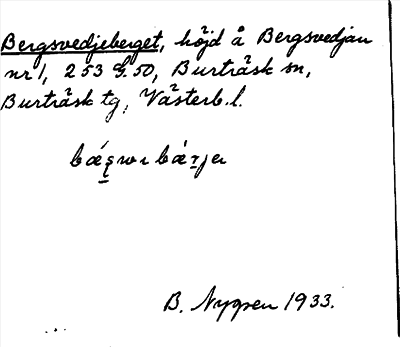 Bergsvedjeberget, höjd å Bergsvedjan
nr 1, 253 G. 50, Burträsk sn,
Burträsk tg, Västerb. l.
B. Nygren 1933.